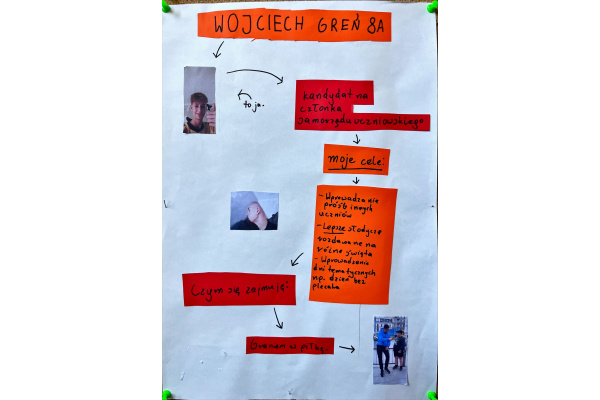 WOJCIECH GREŃ 8A
to ja.
kandydat na
członka
samorządu uczniowskiego
moje cele:
- Wprowadzanie
próśb innych
uczniów
- Lepsze słodycze
rozdawane na
różne święta
- Wprowadzenie
dni tematycznych
np. dzień bez
plecaka
Czym się zajmuję:
w piłkę.